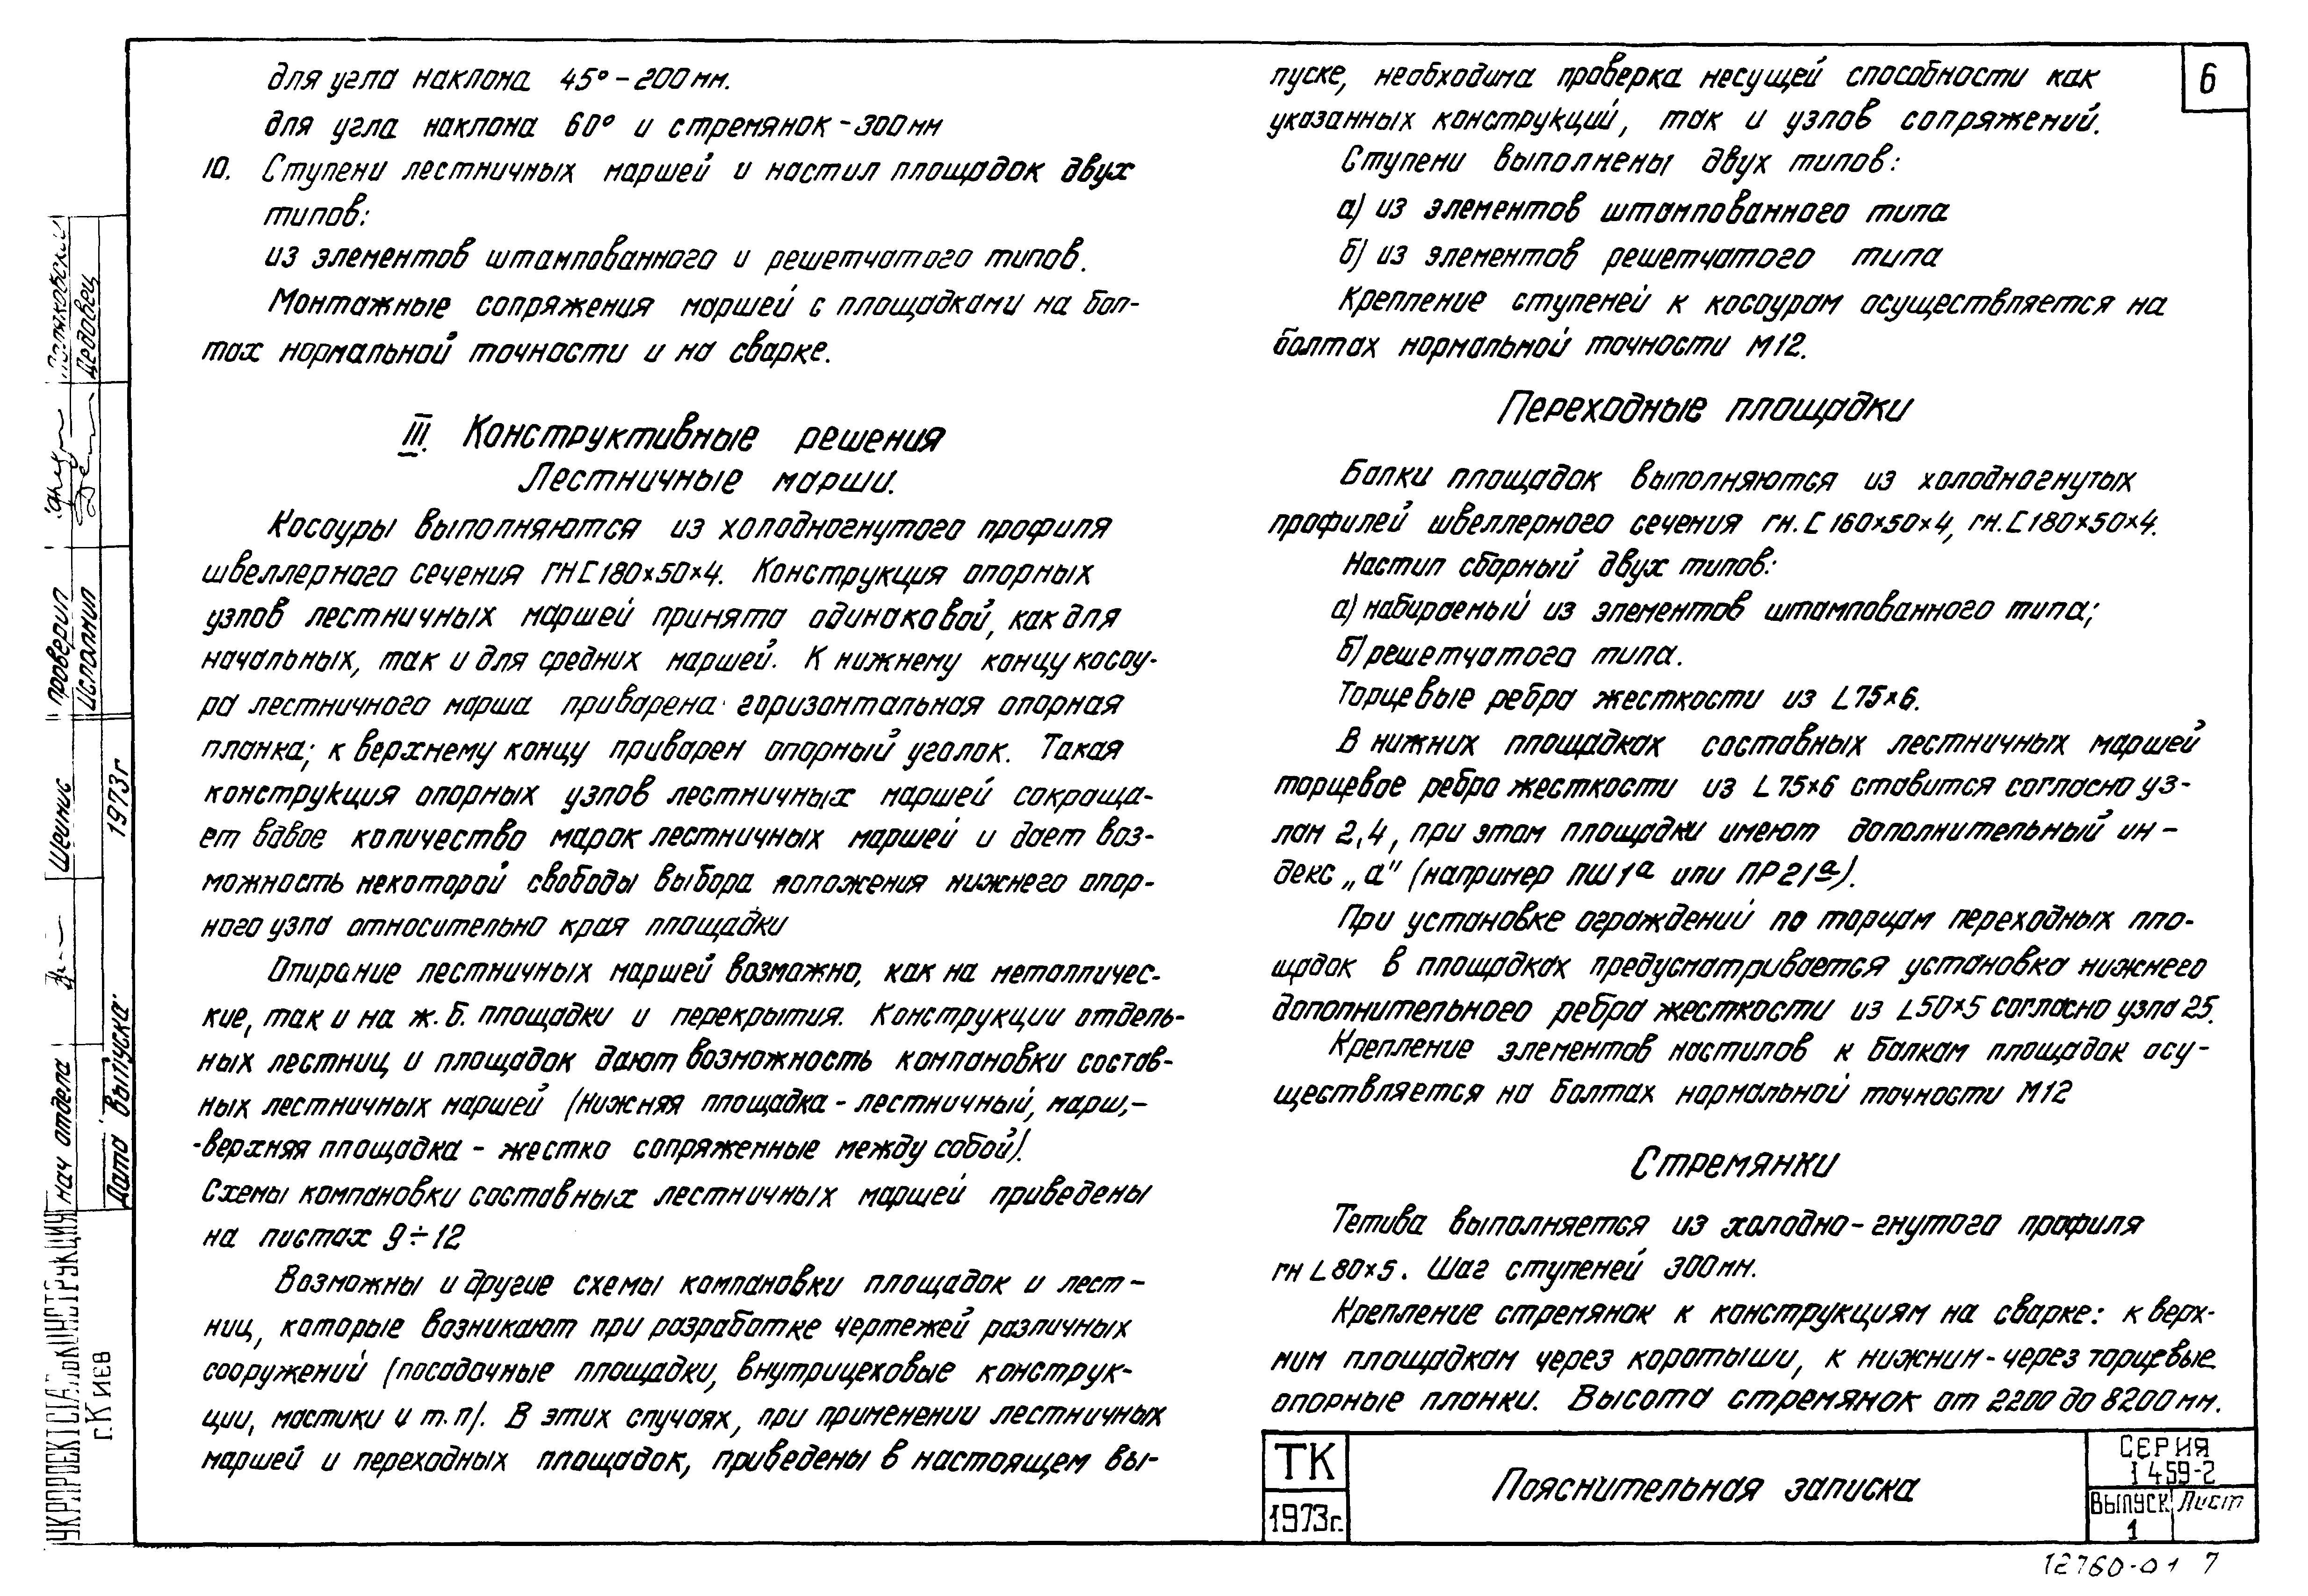 для угла наклона 45° – 200 мм.
для угла наклона 60° и стремянок – 300 мм
10. Ступени лестничных маршей и настил площадок двух
типов:
из элементов штампованного и решетчатого типов.
Монтажные сопряжения маршей с площадками на бол-
тах нормальной точности и на сварке.
III. Конструктивные решения
Лестничные марши.
Косоуры выполняются из холодногнутого профиля
швеллерного сечения ГН[180×50×4. Конструкция опорных
узлов лестничных маршей принята одинаковой, как для
начальных, так и для средних маршей. К нижнему концу косоу-
ра лестничного марша приварена горизонтальная опорная
планка; к верхнему концу приварен опорный уголок. Такая
конструкция опорных узлов лестничных маршей сокраща-
ет вдвое количество марок лестничных маршей и дает воз-
можность некоторой свободы выбора положения нижнего опор-
ного узла относительно края площадки
Опирание лестничных маршей возможно, как на металличес-
кие, так и на ж.б. площадки и перекрытия. Конструкции отдель-
ных лестниц и площадок дают возможность компановки состав-
ных лестничных маршей (нижняя площадка – лестничный, марш,–
-верхняя площадка – жестко сопряженные между собой).
Схемы компановки составных лестничных маршей приведены
на листах 9÷12
Возможны и другие схемы компановки площадок и лест–
ниц, которые возникают при разработке чертежей различных
сооружений (посадочные площадки, внутрицеховые конструк-
ции, мастики и т.п). В этих случаях, при применении лестничных
маршей и переходных площадок, приведены в настоящем вы-
6
пуске, необходима проверка несущей способности как
указанных конструкций, так и узлов сопряжений.
Ступени выполнены двух типов:
а) из элементов штампованного типа
б) из элементов решетчатого типа
Крепление ступеней к косоурам осуществляется на
болтах нормальной точности М12.
Переходные площадки
Балки площадок выполняются из холодногнутых
профилей швеллерного сечения гн.[160×50×4, гн.[180×50×4.
Настил сборный двух типов:
а) набираемый из элементов штампованного типа;
б) решетчатого типа.
Торцевые ребра жесткости из L75×6.
В нижних площадках составных лестничных маршей
торцевое ребро жесткости из L75×6 ставится согласно уз-
лам 2,4, при этом площадки имеют дополнительный ин–
декс „а" (например ПШ1а или ПР21а).
При установке ограждений по торцам переходных пло-
щадок в площадках предусматривается установка нижнего
дополнительного ребра жесткости из L50×5 согласно узла 25.
Крепление элементов настилов к балкам площадок осу-
ществляется на болтах нормальной точности М12
Стремянки
Тетива выполняется из холодно-гнутого профиля
гн L80×5. Шаг ступеней 300мм.
Крепление стремянок к конструкциям на сварке: к верх-
ним площадкам через коротыши, к нижним – через торцевые
опорные планки. Высота стремянок от 2200 до 8200мм.
ТК
1973г.
Пояснительная записка
СЕРИЯ
1 459-2
Выпуск
1
Лист
12760-01 7
УКРПРОЕКТСТАЛЬКОНСТРУКЦИЯ
г. Киев
нач отдела
Шевнис
проверил
исполнил
Дедовец
Дата выпуска:
1973г